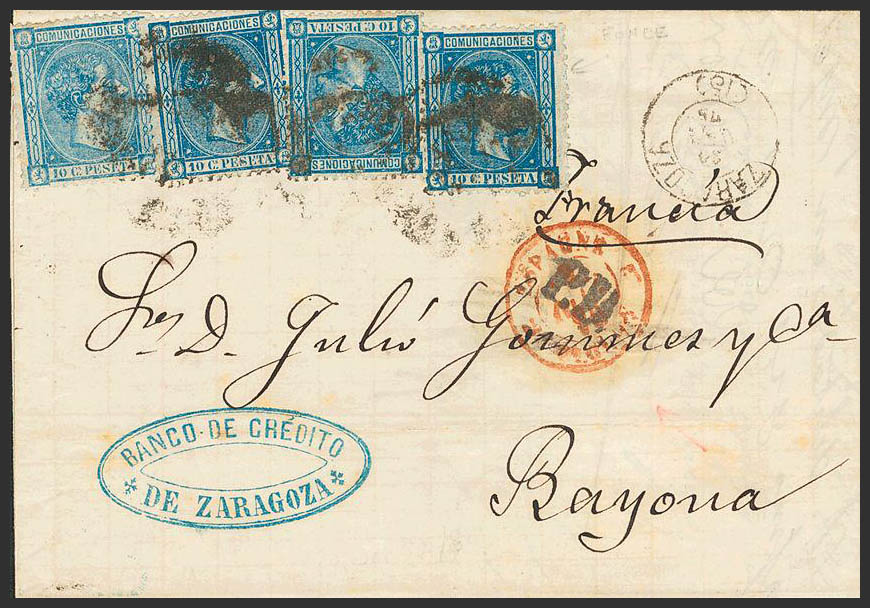 COMUNICACIONES
10 C. PESETA
COMUNICACIONES
10 C. PESETA
COMUNICACIONES
10 C. PESETA
COMUNICACIONES
10 C. PESETA
FONCE
ZARAGOZA
(91)
Francia
P.D.
Sres. D. Julió Gommes y Ca
BANCO·DE CRÉDITO
DE ZARAGOZA
Bayona